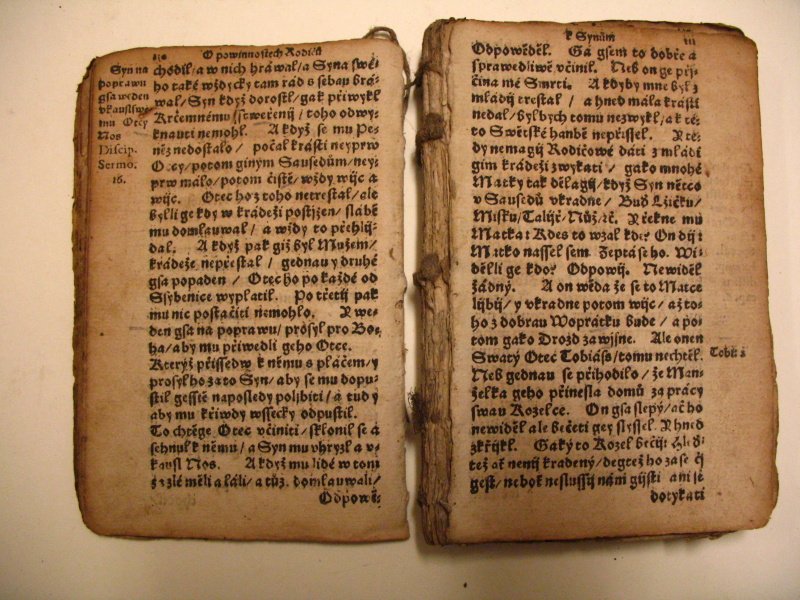 O powinnostech Rodičů
Syn na
poprawu
gsa weden
vkausl swe-
mu Otcy
Nos
Discip.
Sermo.
16.
chodil/ a w nich hráwal/ a Syna swé-
ho také wždycky tam rád s sebau brá-
wal/ Syn když dorostl/ gak přiwykl
Krčemnému ssewetenij/ toho odwy-
knauti nemohl. A když se mu Pe-
něz nedostalo/ počal krásti neyprw
Otcy/ potom giným Sausedům/ ney-
prw málo/ potom čistě/ wždy wijc a
wijc. Otec ho z toho netrestal/ ale
byl li ge kdy w krádeži postjžen/ slabě
mu domlauwal/ a wždy to přehlij-
dal. A když pak giž byl Mužem/
krádeže nepřestal/ gednau y druhé
gsa popaden/ Otec ho po každé od
Ssybenice wyplatil. Po třetij pak
mu nic postačiti nemohlo. A we-
den gsa na poprawu/ prosyl pro Bo-
ha/ aby mu přiwedli geho Otce.
Kterýž přissedw k němu s pláčem/ y
prosyl ho za to Syn/ aby se mu dopu-
stil gesstě naposledy polijbiti/ a tudy
aby mu křiwdy wssecky odpustil.
To chtěge Otec včiniti/ sklonil se a
sehnul k němu/ a Syn mu vhryzl a v-
kausl Nos. A když mu lidé w tom
za zlé měli a láli/ a túž. domlauwali/
Odpowě-
k Synům
Odpowěděl. Ga gsem to dobře a
sprawedliwě včinil. Neb on ge přij-
čina mé Smrti. A kdyby mne byl z
mládij trestal/ a hned mála krásti
nedal/ byl bych tomu nezwykl/ ak té-
to Swětské hanbě nepřissel. A te-
dy nemagij Rodičowé dáti z mládi
gim krádeži zwykati/ gako mnohé
Matky tak dělagij/ když Syn něteo
v Sausedů vkradne/ Buď Lžičku/
Misku/ Talijř/ Nůž/ ić. Řekne mu
Matka: Kdes to wzal kde? On dij:
Matko nassel sem. Zeptá se ho. Wi-
děl li ge kdo? Odpowij. Newiděl
žádný. A on wěda že se to Matce
lijbij/ y vkradne potom wijc/ až to-
ho z dobrau Woprátku bude/ a po-
tom gako Drozd zawisne. Ale onen
Swatý Otec Tobiáss/ tomu nechtěl.
Neb gednau se přihodilo/ že Man-
želka geho přinesla domů za prácy
swau Kozelce. On gsa slepý/ ač ho
newiděl ale bečeti gey slyssel. A hned
zkřijkl. Gaký to Kozel bečij: Hleď-
tež ať nenij kradený/ degtež ho zase čij
gest/ nebo nesslussij nám gijsti ani se
dotykati
Tob: 2